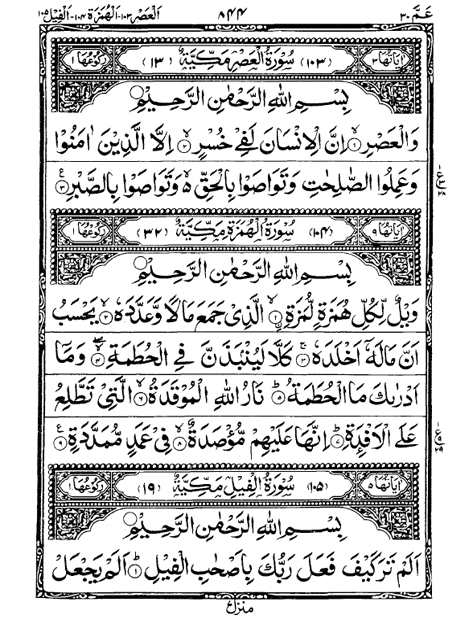 عَمَّ ٣٠ ٨٤٤ الْعَصْر ١٠٣-الْهُمَزَة ١٠٤-الْفِيْل ١٠٥
اٰيَاتُهَا ٣ (١٠٣) سُوْرَةُ الْعَصْرِ مَكِّيَّةٌ (١٣) رُكُوْعُهَا ١
بِسْمِ اللّٰهِ الرَّحْمٰنِ الرَّحِيْمِ
وَالْعَصْرِ ١ اِنَّ الْاِنْسَانَ لَفِيْ خُسْرٍ ٢ اِلَّا الَّذِيْنَ اٰمَنُوْا
وَعَمِلُوا الصّٰلِحٰتِ وَتَوَاصَوْا بِالْحَقِّ ۙ وَتَوَاصَوْا بِالصَّبْرِ ٣
اٰيَاتُهَا ٩ (١٠٤) سُوْرَةُ الْهُمَزَةِ مَكِّيَّةٌ (٣٢) رُكُوْعُهَا ١
بِسْمِ اللّٰهِ الرَّحْمٰنِ الرَّحِيْمِ
وَيْلٌ لِّكُلِّ هُمَزَةٍ لُّمَزَةٍ ١ الَّذِيْ جَمَعَ مَالًا وَّعَدَّدَهٗ ٢ يَحْسَبُ
اَنَّ مَالَهٗٓ اَخْلَدَهٗ ٣ كَلَّا لَيُنْۢبَذَنَّ فِي الْحُطَمَةِ ٤ وَمَآ
اَدْرٰىكَ مَا الْحُطَمَةُ ٥ نَارُ اللّٰهِ الْمُوْقَدَةُ ٦ الَّتِيْ تَطَّلِعُ
عَلَى الْاَفْـِٕدَةِ ٧ اِنَّهَا عَلَيْهِمْ مُّؤْصَدَةٌ ٨ فِيْ عَمَدٍ مُّمَدَّدَةٍ ٩
اٰيَاتُهَا ٥ (١٠٥) سُوْرَةُ الْفِيْلِ مَكِّيَّةٌ (١٩) رُكُوْعُهَا ١
بِسْمِ اللّٰهِ الرَّحْمٰنِ الرَّحِيْمِ
اَلَمْ تَرَ كَيْفَ فَعَلَ رَبُّكَ بِاَصْحٰبِ الْفِيْلِ ١ اَلَمْ يَجْعَلْ